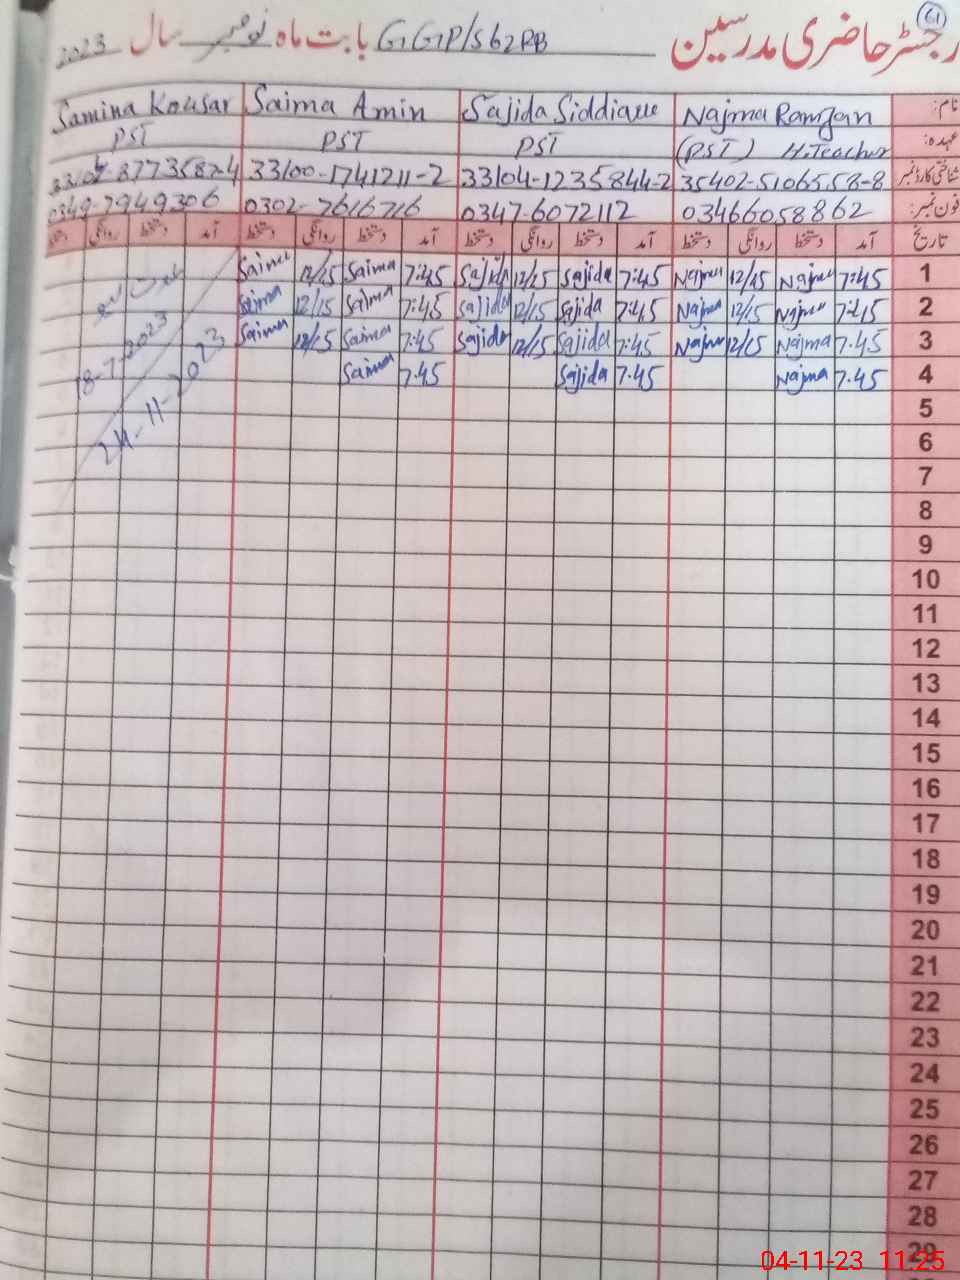 61
رجسٹر حاضری مدرسین G.G.P/S 62 RB بابت ماہ نومبر سال 2023
نام: Najma Ramzan Sajida Siddique Saima Amin Samina Kousar
عہدہ: (PST) H.Teacher PST PST PST
شناختی کارڈ نمبر 35402-5106558-8 33104-1235844-2 33100-1741211-2
فون نمبر: 03466058862 0347-6072112 0302-7616716 0349-7949306
تاریخ آمد دستخط روانگی دستخط آمد دستخط روانگی دستخط آمد دستخط روانگی دستخط آمد دستخط روانگی دستخط
1 7:45 Najma 12/15 Najma 7:45 Sajida 12/15 Sajida 7:45 Saima 12/15 Saima
2 7:45 Najma 12/15 Najma 7:45 Sajida 12/15 Sajida 7:45 Saima 12/15 Saima
3 7.45 Najma 12/15 Najma 7:45 Sajida 12/15 Sajida 7:45 Saima 12/15 Saima
4 7.45 Najma 7.45 Sajida 7.45 Saima
18-7-2023
24-11-2023
5
6
7
8
9
10
11
12
13
14
15
16
17
18
19
20
21
22
23
24
25
26
27
28
29
04-11-23 11:25